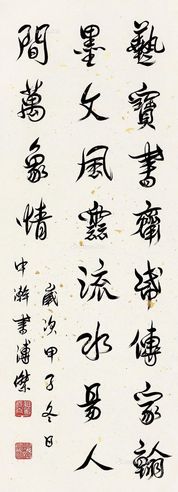 藝寶書齋傳家翰
墨文風流水易人
間萬象情
歲次甲子冬日
中澣書溥傑